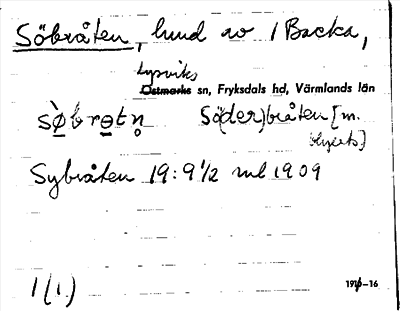 Söbråten, lund av 1 Backa,
Lysviks
Östmarks sn, Fryksdals hd, Värmlands län
sø̀brɵtn̥ Sö(der)bråten [m.
Sybråten 19:9½ ml 1909
1(1)
1916-16